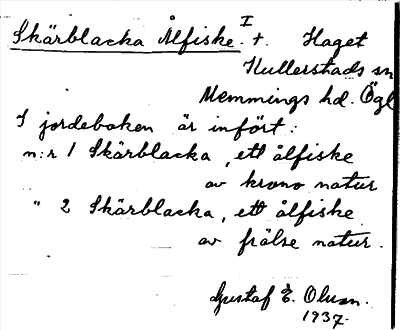 Skärblacka Ålfiske. I t. Haget
Kullerstads sn
Memmings hd. Ögl
I jordeboken är infört:
n:r 1 Skärblacka, ett ålfiske
av krono natur
" 2 Skärblacka, ett ålfiske
av frälse natur.
Gustaf E. Olsson.
1937.